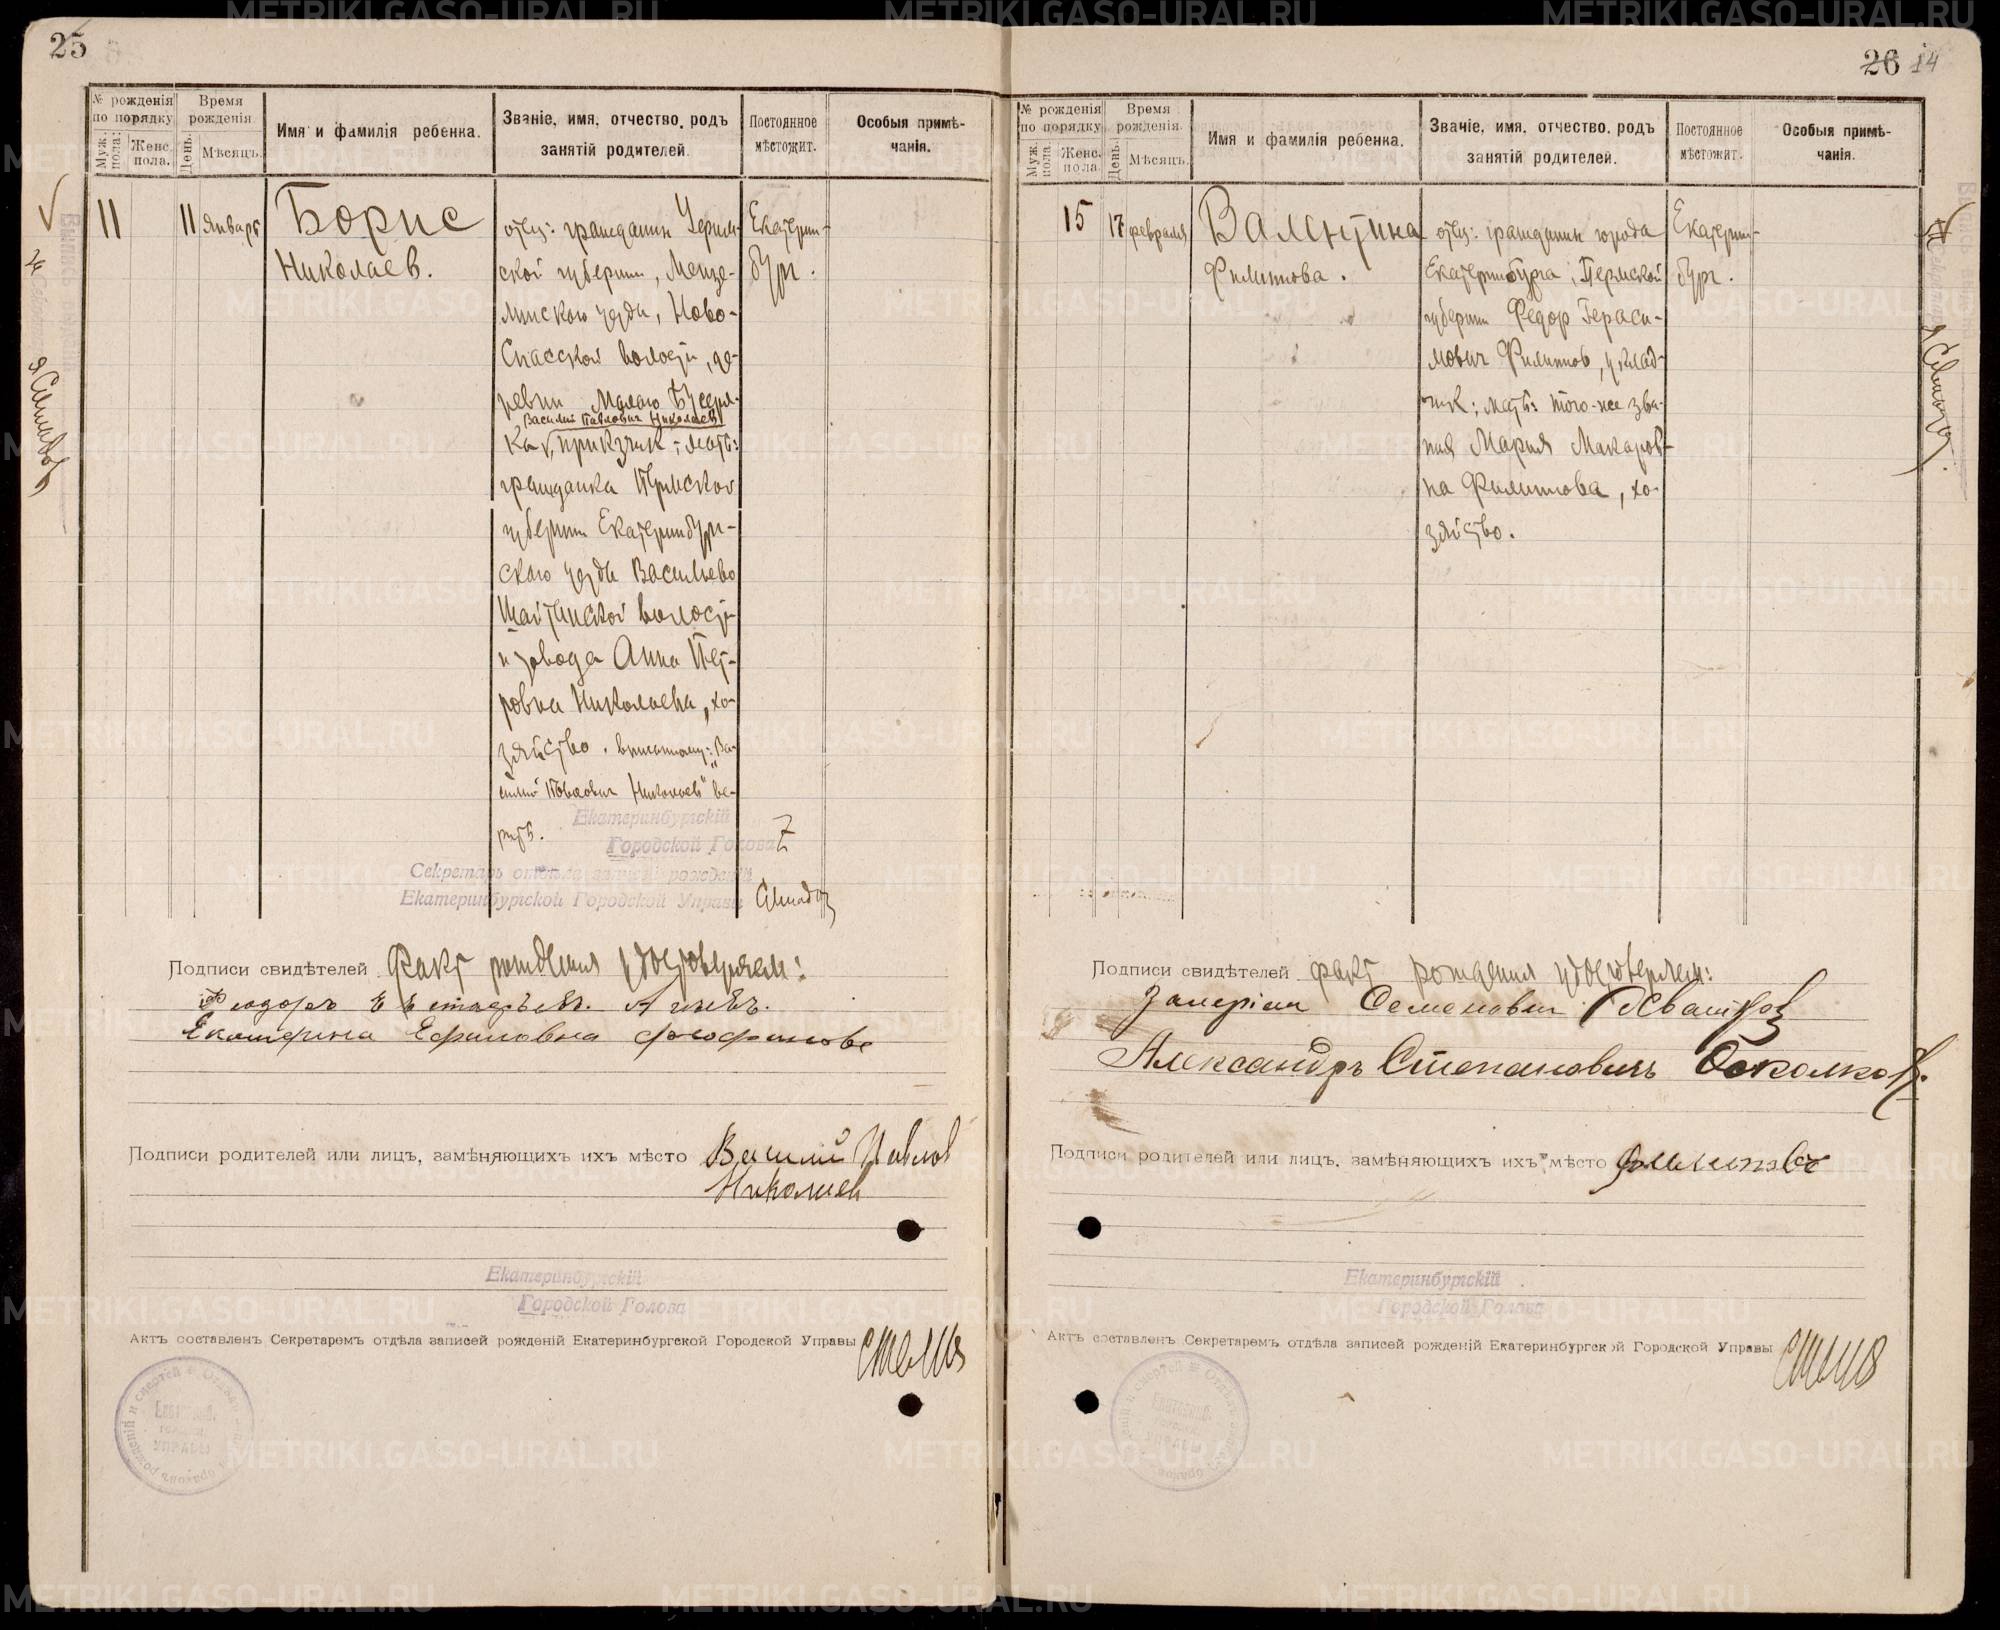 25
№ рожденія по порядку
Время рожденія.
Муж. пола.
Женс. пола.
День.
Мѣсяцъ.
Имя и фамилія ребенка.
Званіе, имя, отчество, родъ занятій родителей.
Постоянное мѣстожит.
Особыя примѣчанія.
11
11
январь
Борис
Николаев.
отец: гражданин
ской губернии, Мензе-
линского уезда, Ново-
Спасской волости, де-
ревни Малаго
Василий Павлович Николаев
ка, приказчик; мать:
гражданка Пермской
губернии Екатеринбург-
ского уезда Васильево
Шайтинской волости
и завода Анна Пет-
ровна Николаева, хо-
зяйство. Ва-
силий Павлович Николаев" ве-
рить.
Екатерин-
бург.
Екатеринбургскій
Городской Голова
Секретарь отдѣла записей рожденій
Екатеринбургской Городской Управы
Подписи свидѣтелей Факт рождения удостоверяем:
Екатерина Ефимовна
Подписи родителей или лицъ, замѣняющихъ ихъ мѣсто Василий Павлов
Николаев
Екатеринбургскій
Городской Голова
Актъ составленъ Секретаремъ отдѣла записей рожденій Екатеринбургской Городской Управы
26 14
№ рожденія по порядку
Время рожденія.
Муж. пола.
Женс. пола.
День.
Мѣсяцъ.
Имя и фамилія ребенка.
Званіе, имя, отчество, родъ занятій родителей.
Постоянное мѣстожит.
Особыя примѣчанія.
15
17
февраля
Валентина
Филиппова.
отец: гражданин города
Екатеринбурга, Пермской
губернии Федор Гераси-
мович Филиппов, уклад-
чик; мать: того-же зва-
ния Мария Макаров-
на Филиппова, хо-
зяйство.
Екатерин-
бург.
Подписи свидѣтелей факт рождения удостоверяем:
Семенович
Александръ Степановичъ
Подписи родителей или лицъ, замѣняющихъ ихъ мѣсто
Екатеринбургскій
Городской Голова
Актъ составленъ Секретаремъ отдѣла записей рожденій Екатеринбургской Городской Управы
METRIKI.GASO-URAL.RU